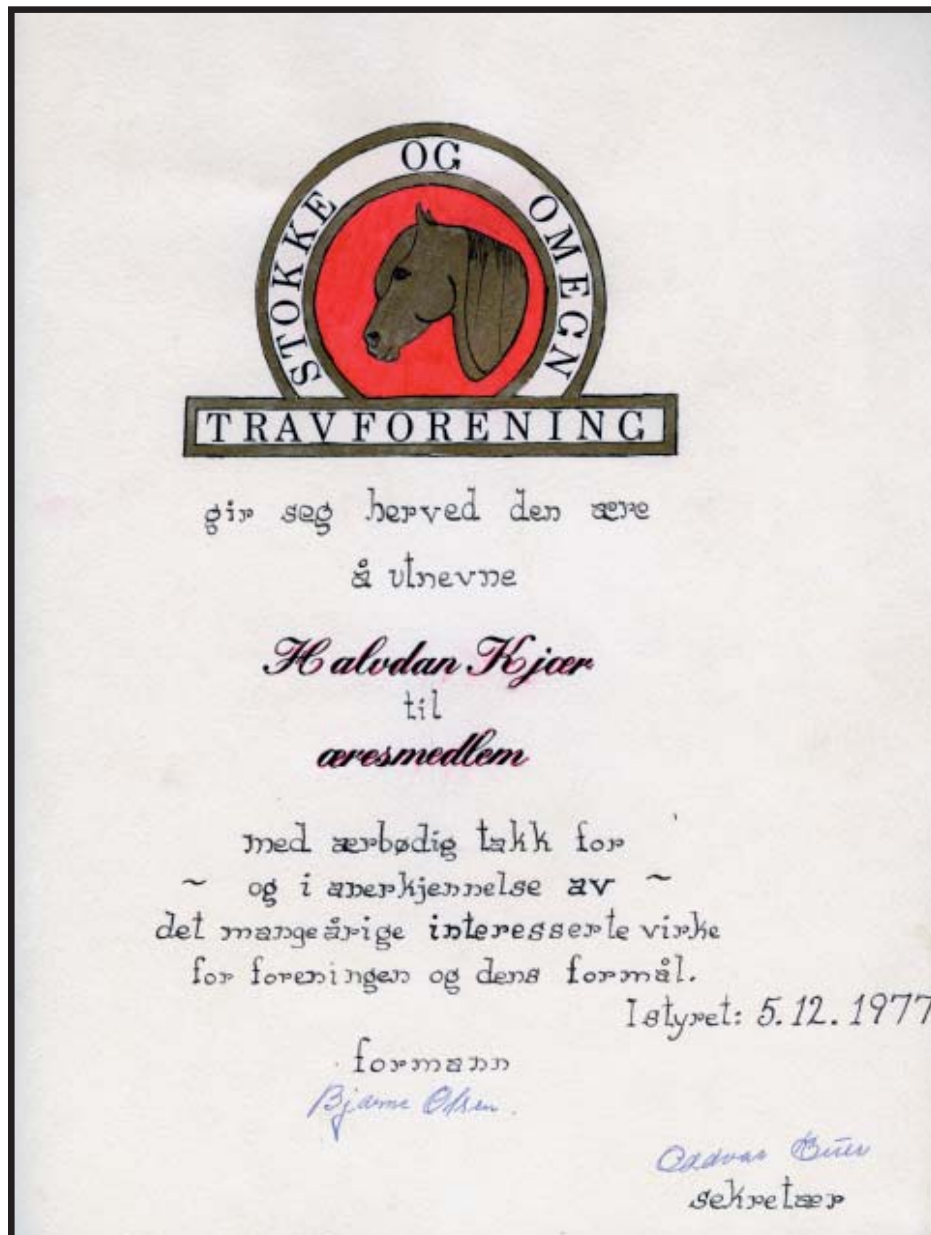 STOKKE OG OMEGN
TRAVFORENING
gir seg herved den ære
å utnevne
Halvdan Kjær
til
æresmedlem
med ærbødig takk for
~ og i anerkjennelse av ~
det mangeårige interesserte virke
for foreningen og dens formål.
I styret: 5.12.1977
formann
Bjarne Olsen.
Oddvar
sekretær